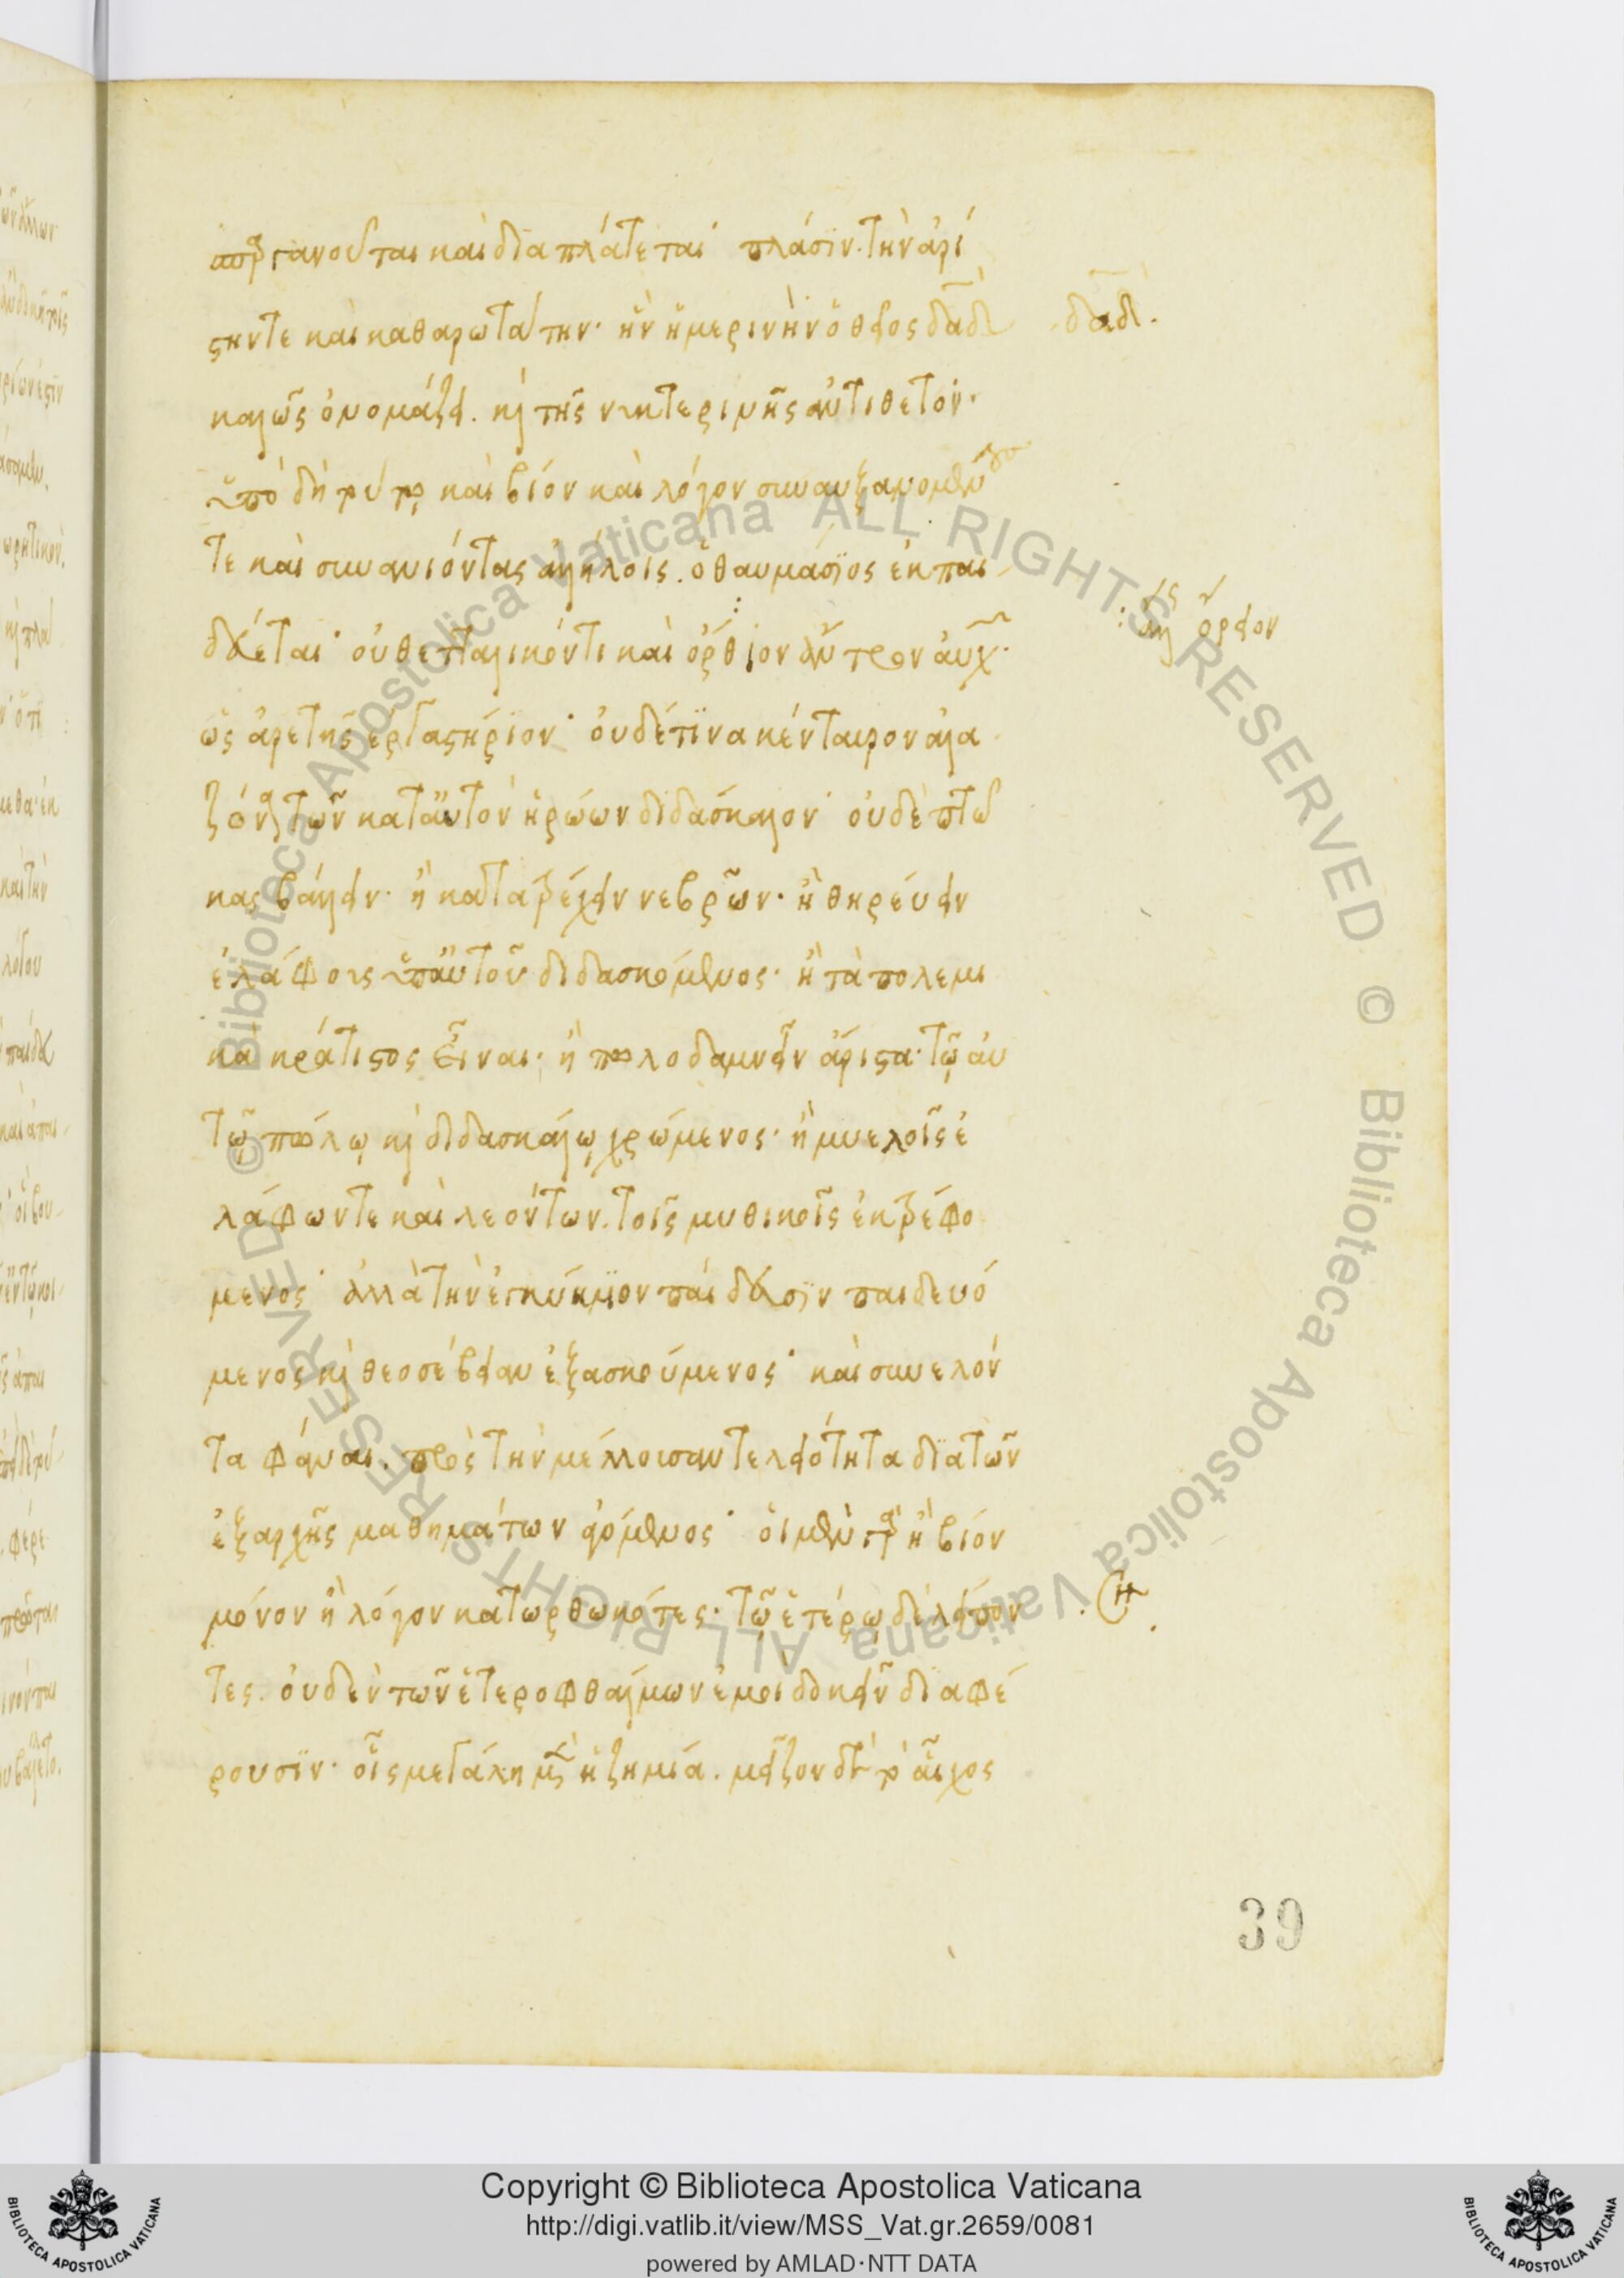 σπαργανοῦται καὶ διαπλάττεται πλάσιν. τὴν ἀρί
στην τε καὶ καθαρωτάτην· ἣν ἡμερινὴν ὁ θεῖος δαδὶδ
καλῶς ὀνομάζει. καὶ τῆς νυκτερινῆς ἀντίθετον·
ὑπὸ δὴ τούτῳ καὶ βίον καὶ λόγον συναυξανομένους
τε καὶ συνανιόντας ἀλλήλοις. ὁ θαυμάσιος ἐκπαι
δεύεται· οὐ θετταλικόν τι καὶ ὄρθιον ἄντρον αὐχῶν
ὡς ἀρετῆς ἐργαστήριον· οὐδέ τινα κένταυρον ἀλα
ζόνα τῶν κατ' αὐτὸν ἡρώων διδάσκαλον· οὐδὲ πτῶ
κας βάλλειν· ἢ κατατρέχειν νεβρῶν· ἢ θηρεύειν
ἐλάφους ὑπ' αὐτοῦ διδασκόμενος· ἢ τὰ πολεμι
κὰ κράτιστος εἶναι· ἢ πωλοδαμνεῖν ἄριστα· τῷ αὐ
τῷ πώλῳ καὶ διδασκάλῳ χρώμενος· ἢ μυελοῖς ἐ
λάφων τε καὶ λεόντων. τοῖς μυθικοῖς ἐκτρεφό
μενος· ἀλλὰ τὴν ἐγκύκλιον παίδευσιν παιδευό
μενος καὶ θεοσέβειαν ἐξασκούμενος· καὶ συνελόν
τα φάναι. πρὸς τὴν μέλλουσαν τελειότητα διὰ τῶν
ἐξαρχῆς μαθημάτων ἀγόμενος· οἱ μὲν γὰρ ἢ βίον
μόνον ἢ λόγον κατωρθωκότες· τῷ ἑτέρῳ δὲ λείπον
τες. οὐδὲν τῶν ἑτεροφθάλμων ἐμοὶ δοκεῖν διαφέ
ρουσιν· οἷς μεγάλη μὲν ἡ ζημία. μεῖζον δὲ τὸ αἶσχος
δαδὶδ.
39
Copyright © Biblioteca Apostolica Vaticana
http://digi.vatlib.it/view/MSS_Vat.gr.2659/0081
powered by AMLAD·NTT DATA
BIBLIOTECA APOSTOLICA VATICANA
BIBLIOTECA APOSTOLICA VATICANA
© Biblioteca Apostolica Vaticana ALL RIGHTS RESERVED
© Biblioteca Apostolica Vaticana ALL RIGHTS RESERVED